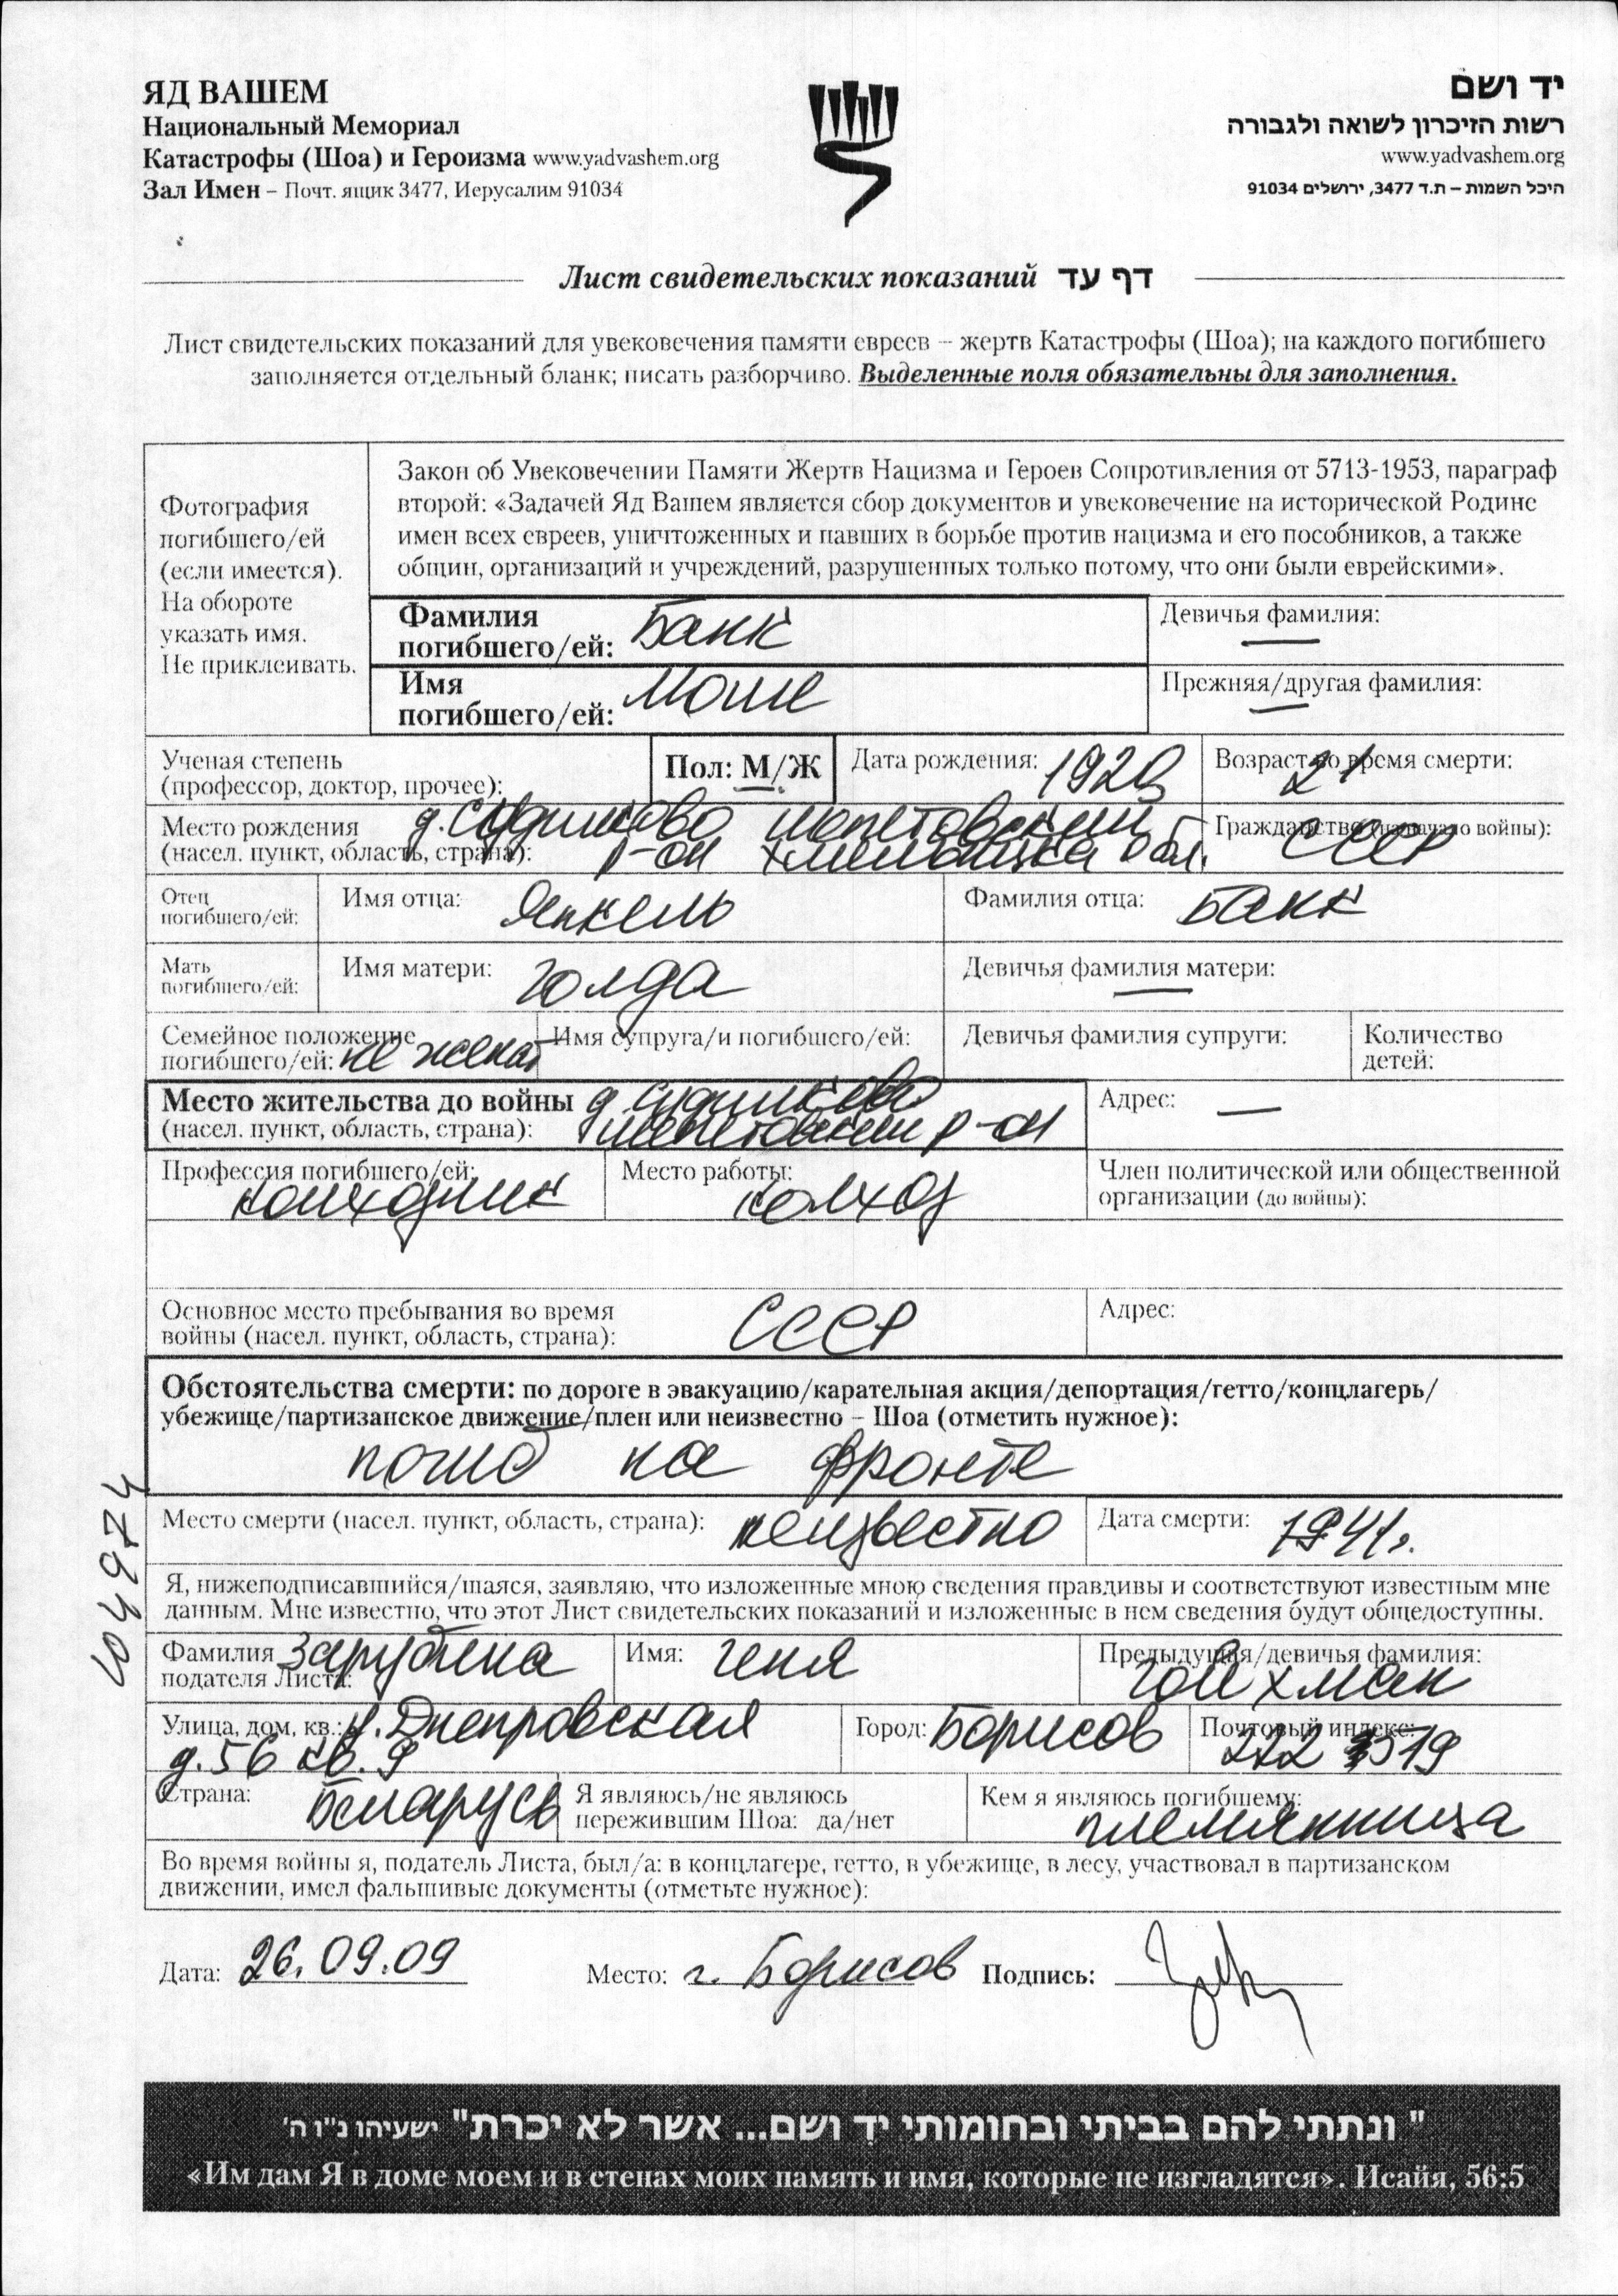 ЯД ВАШЕМ
Национальный Мемориал
Катастрофы (Шоа) и Героизма www.yadvashem.org
Зал Имен – Почт. ящик 3477, Иерусалим 91034
יד ושם
רשות הזיכרון לשואה ולגבורה
www.yadvashem.org
היכל השמות – ת.ד 3477, ירושלים 91034
Лист свидетельских показаний דף עד
Лист свидетельских показаний для увековечения памяти евреев – жертв Катастрофы (Шоа); на каждого погибшего
заполняется отдельный бланк; писать разборчиво. Выделенные поля обязательны для заполнения.
Фотография
погибшего/ей
(если имеется).
На обороте
указать имя.
Не приклеивать.
Закон об Увековечении Памяти Жертв Нацизма и Героев Сопротивления от 5713-1953, параграф
второй: «Задачей Яд Вашем является сбор документов и увековечение на исторической Родине
имен всех евреев, уничтоженных и павших в борьбе против нацизма и его пособников, а также
общин, организаций и учреждений, разрушенных только потому, что они были еврейскими».
Фамилия
погибшего/ей: Банк
Девичья фамилия: —
Имя
погибшего/ей: Моше
Прежняя/другая фамилия: —
Ученая степень
(профессор, доктор, прочее):
Пол: М/Ж
Дата рождения: 1920
Возраст во время смерти: 21
Место рождения д. Судилково шепетовский
(насел. пункт, область, страна): р-он обл.
Гражданство (на начало войны): СССР
Отец
погибшего/ей:
Имя отца: Янкель
Фамилия отца: Банк
Мать
погибшего/ей:
Имя матери: Голда
Девичья фамилия матери: —
Семейное положение
погибшего/ей: не женат
Имя супруга/и погибшего/ей:
Девичья фамилия супруги:
Количество
детей:
Место жительства до войны д. Судилково
(насел. пункт, область, страна): шепетовский р-он
Адрес: —
Профессия погибшего/ей:
колхозник
Место работы:
колхоз
Член политической или общественной
организации (до войны):
Основное место пребывания во время
войны (насел. пункт, область, страна): СССР
Адрес:
Обстоятельства смерти: по дороге в эвакуацию/карательная акция/депортация/гетто/концлагерь/
убежище/партизанское движение/плен или неизвестно – Шоа (отметить нужное):
погиб на фронте
Место смерти (насел. пункт, область, страна): неизвестно
Дата смерти: 1941г.
Я, нижеподписавшийся/шаяся, заявляю, что изложенные мною сведения правдивы и соответствуют известным мне
данным. Мне известно, что этот Лист свидетельских показаний и изложенные в нем сведения будут общедоступны.
Фамилия Зарубина
податели Листа:
Имя: Геня
Предыдущая/девичья фамилия:
Гойхман
Улица, дом, кв.: у. Днепровская
д. 56 кв. 9
Город: Борисов
Почтовый индекс:
Страна: Беларусь
Я являюсь/не являюсь
пережившим Шоа: да/нет
Кем я являюсь погибшему:
племянница
Во время войны я, податель Листа, был/а: в концлагере, гетто, в убежище, в лесу, участвовал в партизанском
движении, имел фальшивые документы (отметьте нужное):
Дата: 26.09.09
Место: г. Борисов
Подпись:
" ונתתי להם בביתי ובחומותי יד ושם... אשר לא יכרת" ישעיהו נ"ו ה'
«Им дам Я в доме моем и в стенах моих память и имя, которые не изгладятся». Исайя, 56:5